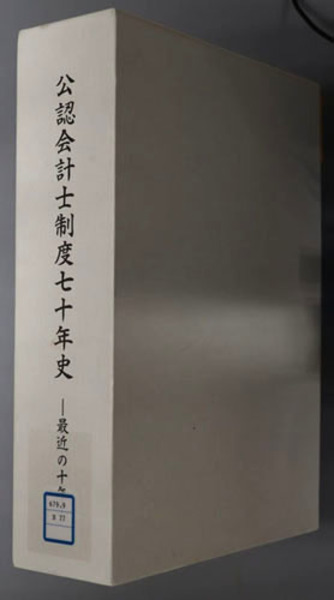 公認会計士制度七十年史
―最近の十年
679.9